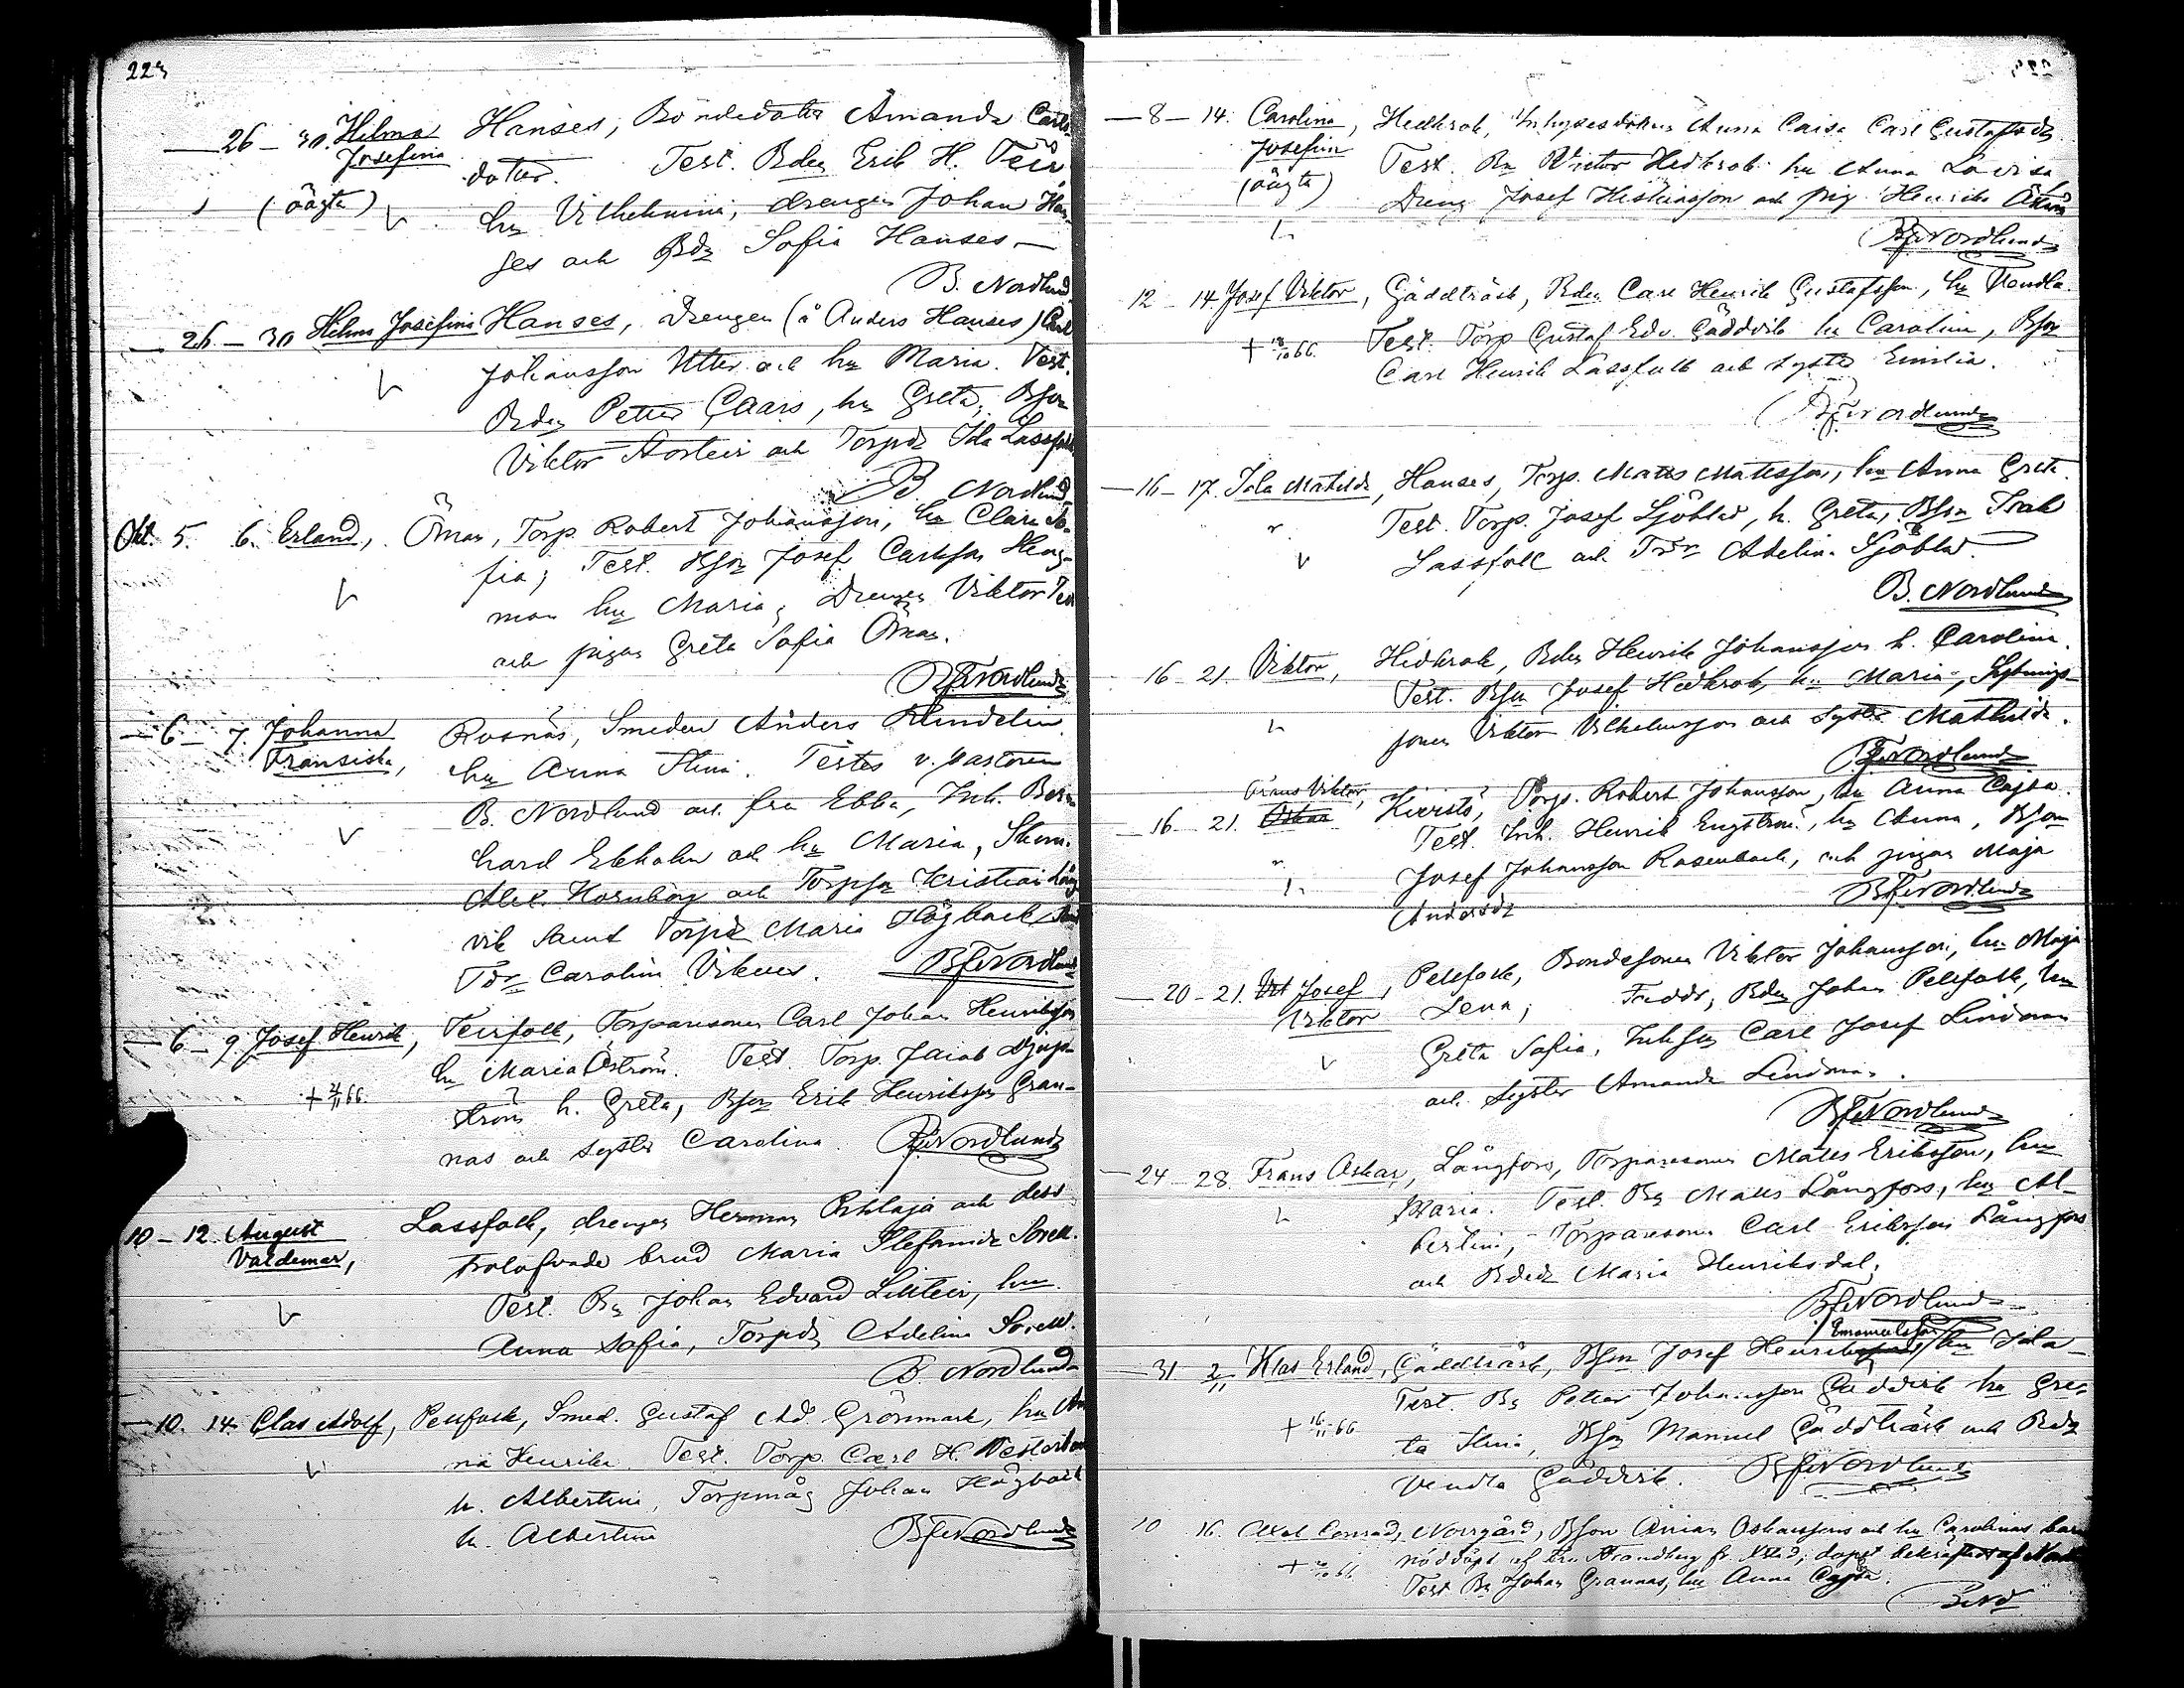 223
—26–30. Hilma Hanses, Bondedotter Amanda Carls-
Josefina dotter. Test. Bden Erik H. Teir
(oägta) hu Vilhelmina, drengen Johan Han-
ses och Bdr Sofia Hanses—
B. Nordlund
—26–30 Hilma Josefina Hanses, Drengen (å Anders Hanses) Carl
Johansson Utter och hu Maria. Test.
Bden Petter Gaars, hu Greta, Bson
Viktor Norteir och Torpdr Ida Lassfolk
B. Nordlund
Okt. 5. 6. Erland, Öman, Torp. Robert Johansson, hu Clara So-
fia; Test. Bson Josef Carlsson Heng-
man hu Maria; Drengen Viktor Teir
och pigan Greta Sofia Öman.
BFNordlund
—6–7. Johanna Rosnäs, Smeden Anders Klindelin
Fransiska, hu Anna Stina. Testes v. pastoren
B. Nordlund och fru Ebba, Inh. Bern-
hard Ekholm och hu Maria, Skom.
Alex. Hornborg och Torpson Kristian Lång-
vik samt Torpdr Maria Högback
Tdr Carolina Vikeus. BFNordlund
—6–9 Josef Henrik, Teirfolk, Torparesonen Carl Johan Henriksson
hu Maria Öström. Test. Torp. Jacob Djup-
+ 21/11 66. ström h. Greta, Bson Erik Henriksson Gran-
nas och syster Carolina. BFNordlund
10–12 August Lassfolk, drengen Herman Pihlaja och dess
Valdemar, trolofvade brud Maria Stefansdr Sorell.
Test. Bn Johan Edvard Lillteir, hu
Anna Sofia, Torpdr Adelina Sorell.
B. Nordlund
—10. 14. Clas Adolf, Pellfolk, Smed. Gustaf Ad. Grönmark, hu An-
na Henrika. Test. Torp. Carl H. Westerlund
h. Albertina, Torpmåg Johan Högback
h. Albertina BFNordlund
—8–14. Carolina, Hedkrok, Inhysesdottern Anna Caisa Carl Gustafsdr
Josefina Test. Bn Victor Hedkrok hu Anna Lovisa
(oägta) Dreng Josef Hiskiasson och pig. Henrika
BFNordlund
12–14 Josef Viktor, Gäddträsk, Bden Carl Henrik Gustafsson, hu Vendla
+ 18/10 66. Test. Torp Gustaf Edv. Gäddvik hu Carolina, Bson
Carl Henrik Lassfolk och syster Emilia.
BFNordlund
—16–17. Ida Matilda, Hanses, Torp. Matts Mattsson, hu Anna Greta
Test. Torp. Josef Sjöblad, h. Greta, Bson Isak
Lassfolk och Tdr Adelina Sjöblad.
B. Nordlund
16–21 Viktor, Hedkrok, Bden Henrik Johansson h. Carolina.
Test. Bson Josef Hedkrok, hu Maria, Sytnings-
sonen Viktor Vilhelmsson och syster Mathilda.
BFNordlund
Frans Viktor,
—16–21. Oskar Kivistö, Torp. Robert Johansson, hu Anna Cajsa.
Test. Inh. Henrik Engström, hu Anna, Bson
Josef Johansson Rosenback, och pigan Maja
Andersdr BFNordlund
—20–21. Josef, Pellfolk, Bondesonen Viktor Johansson, hu Maja
Viktor Lena; Faddr, Bden Johan Pellfolk, hu
Greta Sofia, Inhson Carl Josef Lindman
och syster Amanda Lindman.
BFNordlund
—24–28. Frans Oskar, Långfors, Torparesonen Matts Eriksson, hu
Maria. Test. Bn Matts Långfors, hu Al-
bertina, Torparesonen Carl Eriksson Långfors
och Bdedr Maria Henriksdal,
BFNordlund
Emanuelsson
—31 2/11 Klas Erland, Gäddträsk, Bson Josef Henriksson hu Ida
Test. Bn Petter Johansson Gäddvik hu Gre-
+ 16/11 66 ta Stina, Bson Manuel Gäddträsk och Bdr
Vendla Gäddvik. BFNordlund
10 16. Axel Conrad, Norrgård, Bson Arian Oskarssons och hu Carolinas barn
nöddöpt af Strandberg
Test Bn Johan Grannas, hu Anna Cajsa.